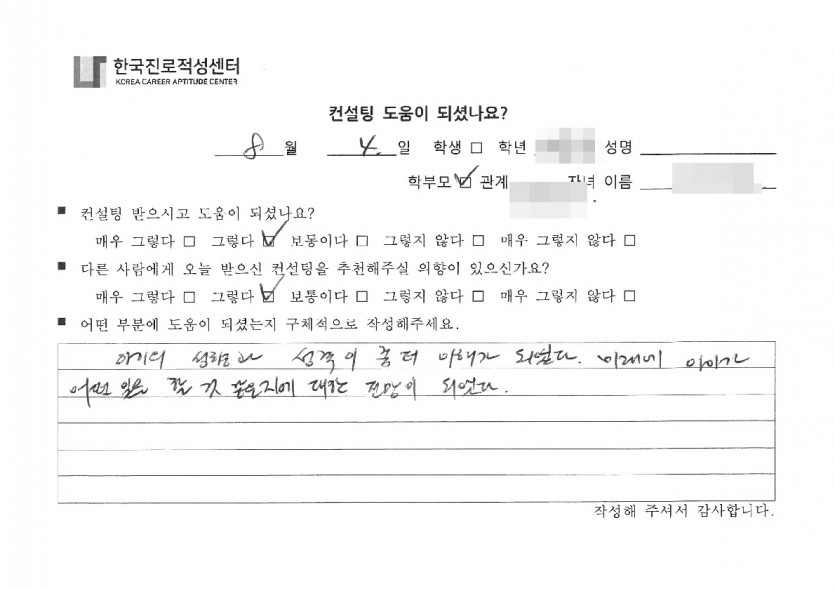 한국진로적성센터
KOREA CAREER APTITUDE CENTER
컨설팅 도움이 되셨나요?
8 월 4. 일 학생 □ 학년 성명
학부모 ☑ 관계 자녀 이름
■ 컨설팅 받으시고 도움이 되셨나요?
매우 그렇다 □ 그렇다 ☑ 보통이다 □ 그렇지 않다 □ 매우 그렇지 않다 □
■ 다른 사람에게 오늘 받으신 컨설팅을 추천해주실 의향이 있으신가요?
매우 그렇다 □ 그렇다 ☑ 보통이다 □ 그렇지 않다 □ 매우 그렇지 않다 □
■ 어떤 부분에 도움이 되셨는지 구체적으로 작성해주세요.
성격이 좀 더 이해가 되었다. 미래에 아이가
어떤 일을 할 것 같은지에 대한 전망이 되었다.
작성해 주셔서 감사합니다.